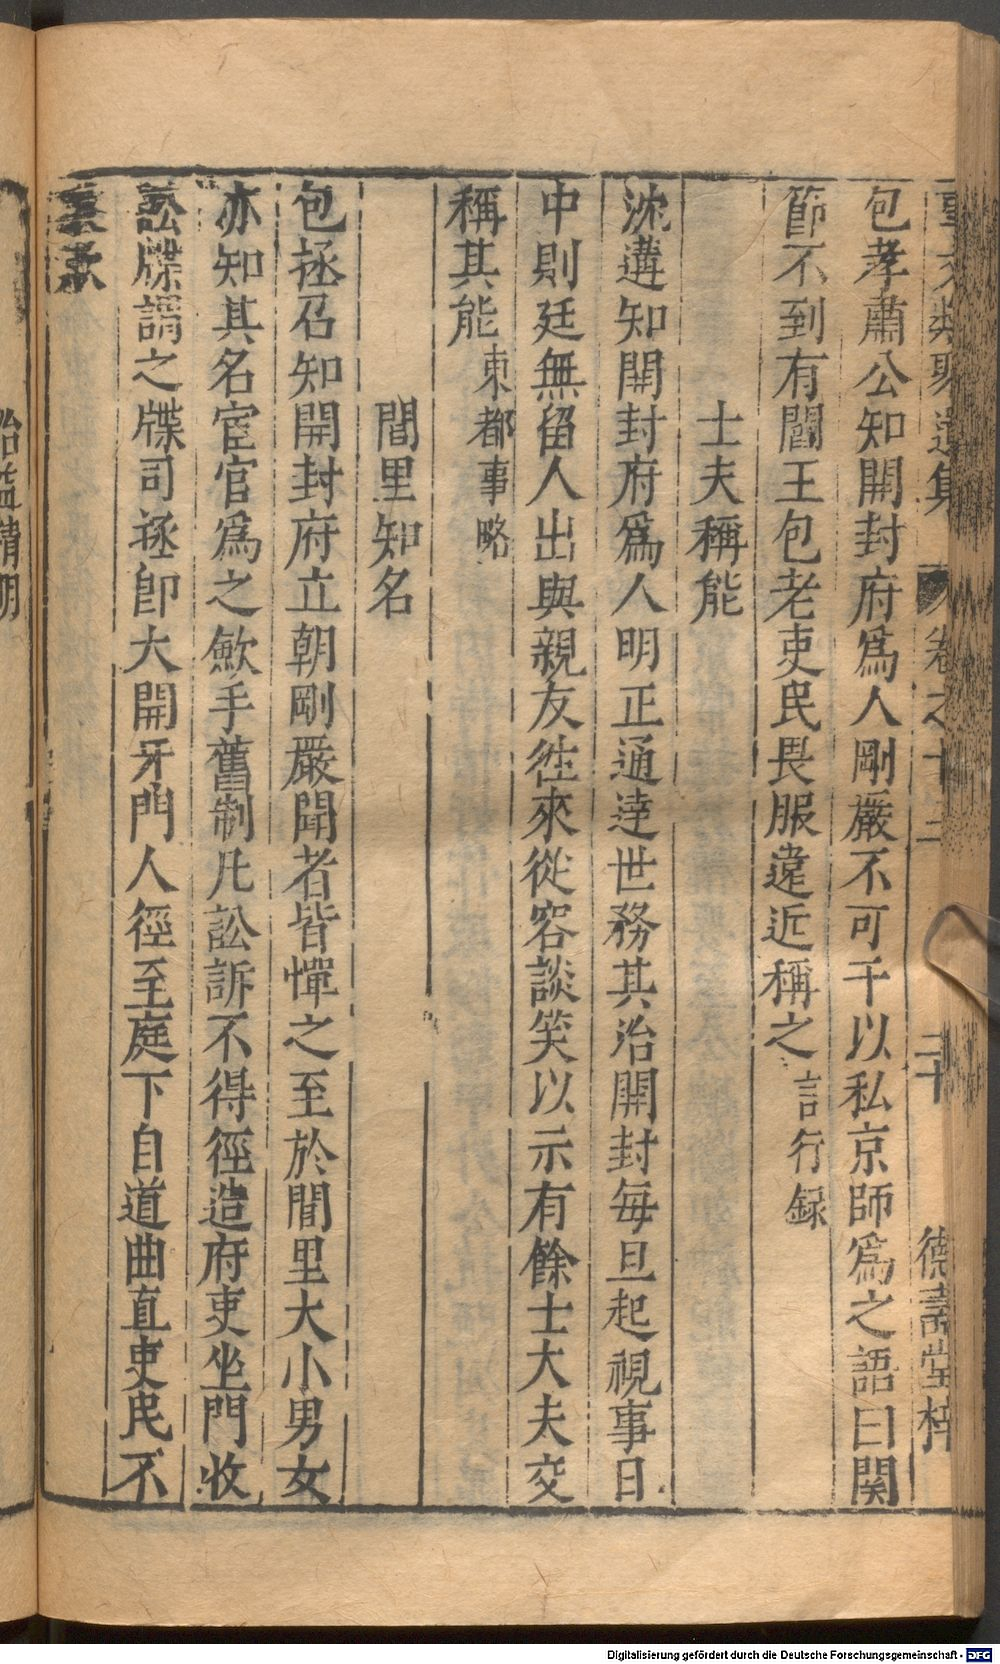 事文類聚遺集 卷之十三 二十 德壽堂梓
包孝肅公知開封府爲人剛嚴不可干以私京師爲之語曰関
節不到有閻王包老吏民畏服遠近稱之 言行録
士夫稱能
沈遘知開封府爲人明正通達世務其治開封每旦起視事日
中則廷無留人出與親友徃來從容談笑以示有餘士大夫交
稱其能 東都事略
閭里知名
包拯召知開封府立朝剛嚴聞者皆憚之至於閭里大小男女
亦知其名宦官爲之歛手舊制凢訟訴不得徑造府吏坐門收
訟牒謂之牒司拯卽大開牙門人徑至庭下自道曲直吏民不
治益精明
Digitalisierung gefördert durch die Deutsche Forschungsgemeinschaft - DFG